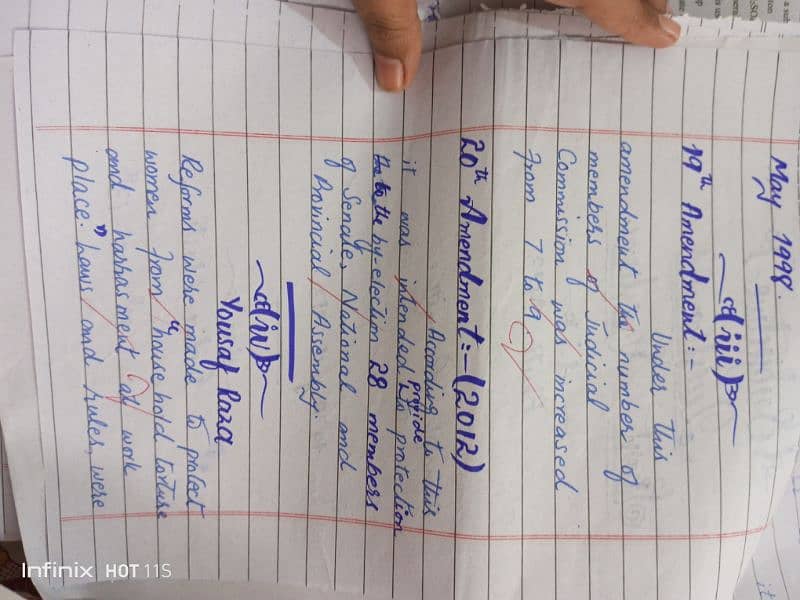 May 1998.
(iii)
19th Amendment:-
Under this
amendment the number of
members of Judicial
Commission was increased
from 7 to 9
20th Amendment:- (2012)
According to this
it was intended to provide protection
to the by election 28 members
of Senate, National and
Provincial Assembly.
(iv)
Yousaf Raza
Reforms were made to protect
women from "house hold torture
and harrasment at work
place." Laws and rules, were
Infinix HOT 11S